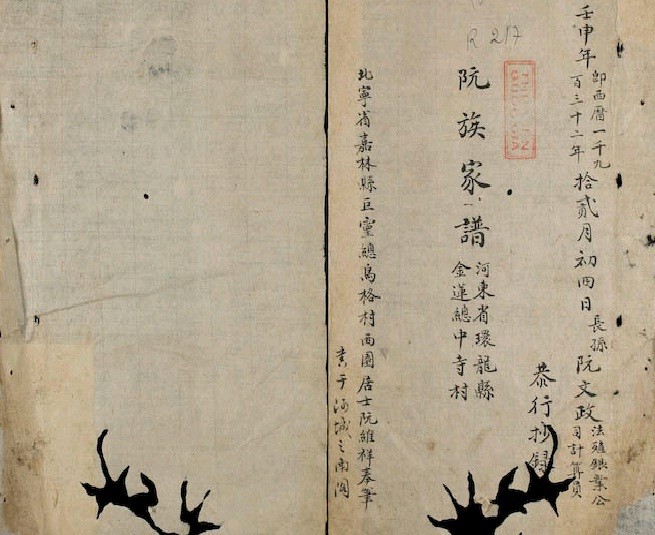 壬申年卽西曆一千九百三十二年拾貳月初四日長孫阮文政法殖銀業公司計算員
恭行抄錄
阮族家譜
河東省環龍縣
金蓮總中寺村
R 217
北寧省嘉林縣巨靈總烏格村西園居士阮維祥奉筆
書于河城之南